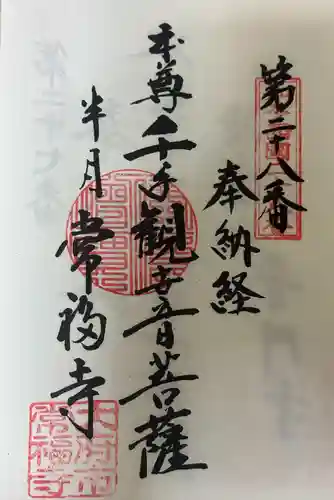 第二十八番
奉納経
本尊千手観世音菩薩
半月
常福寺